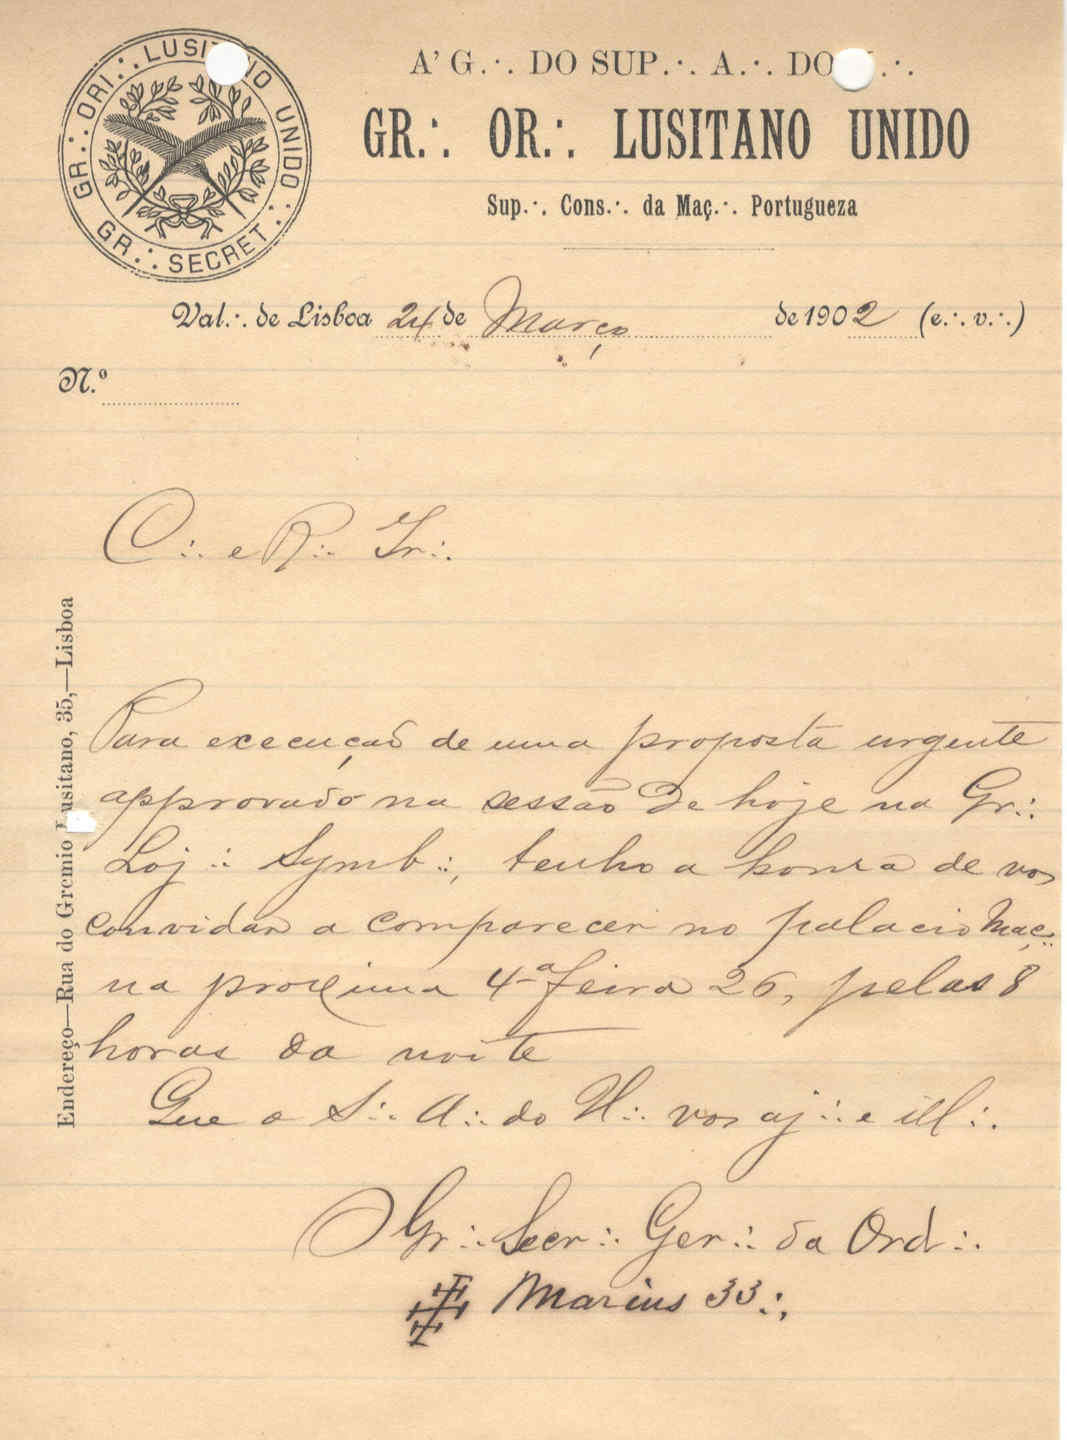 GR.·. ORI.·. LUSITANO UNIDO.·.
GR.·. SECRET.·.
A' G.·. DO SUP.·. A.·. DO .·.
GR.·. OR.·. LUSITANO UNIDO
Sup.·. Cons.·. da Maç.·. Portugueza
Val.·. de Lisboa 24 de Março de 1902 (e.·. v.·.)
N.º
C.·. e R.·. Ir.·.
Para execução de uma proposta urgente
approvado na sessão de hoje na Gr.·.
Loj.·. Symb.·., tenho a honra de vos
convidar a comparecer no palacio Maç.·.
na proxima 4ª feira 26, pelas 8
horas da noite
Que o S.·. A.·. do U.·. vos aj.·. e ill.·.
O Gr.·. Secr.·. Ger.·. da Ord.·.
Marius 33.·.
Endereço—Rua do Gremio Lusitano, 35,—Lisboa